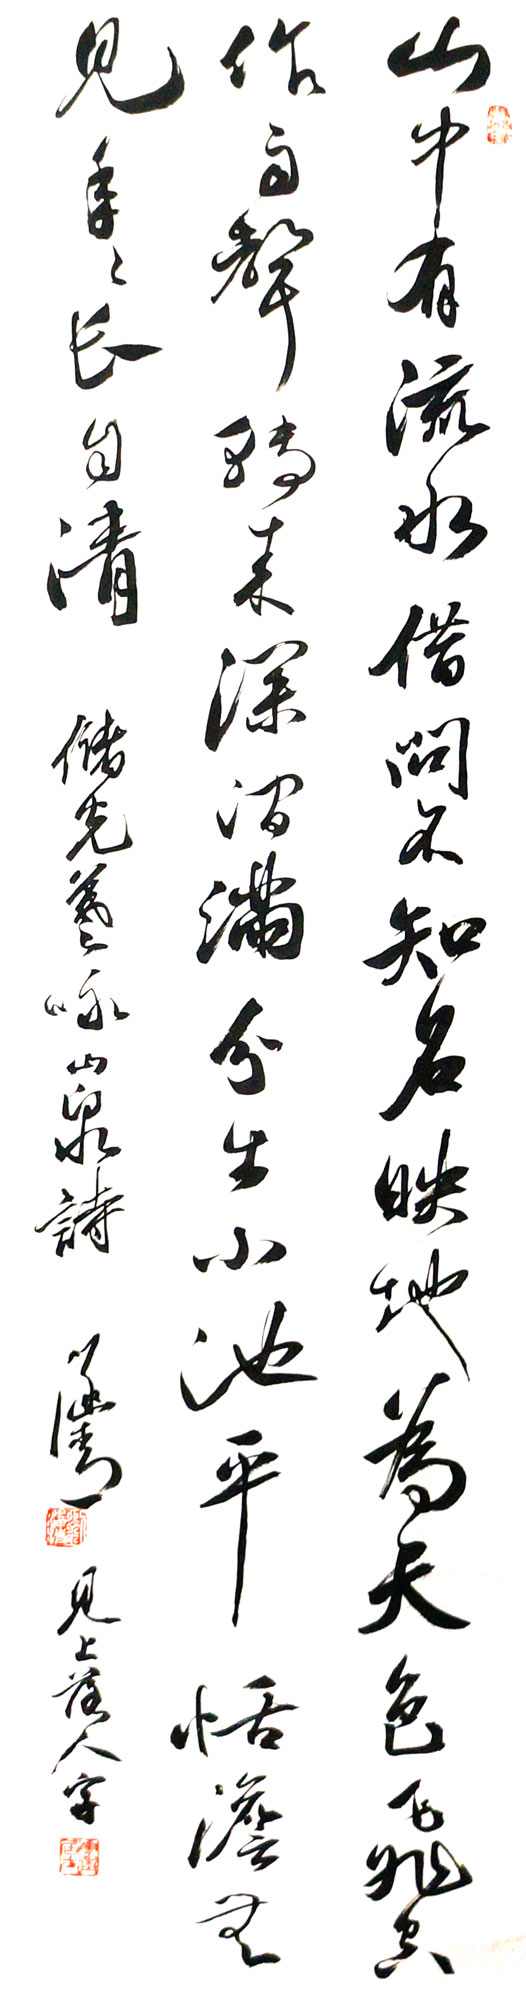 山中有流水借問不知名映地為天色飛空
作雨聲轉來深澗滿分出小池平恬澹无
見年々長自清 儲光羲咏山泉詩 見上落人字